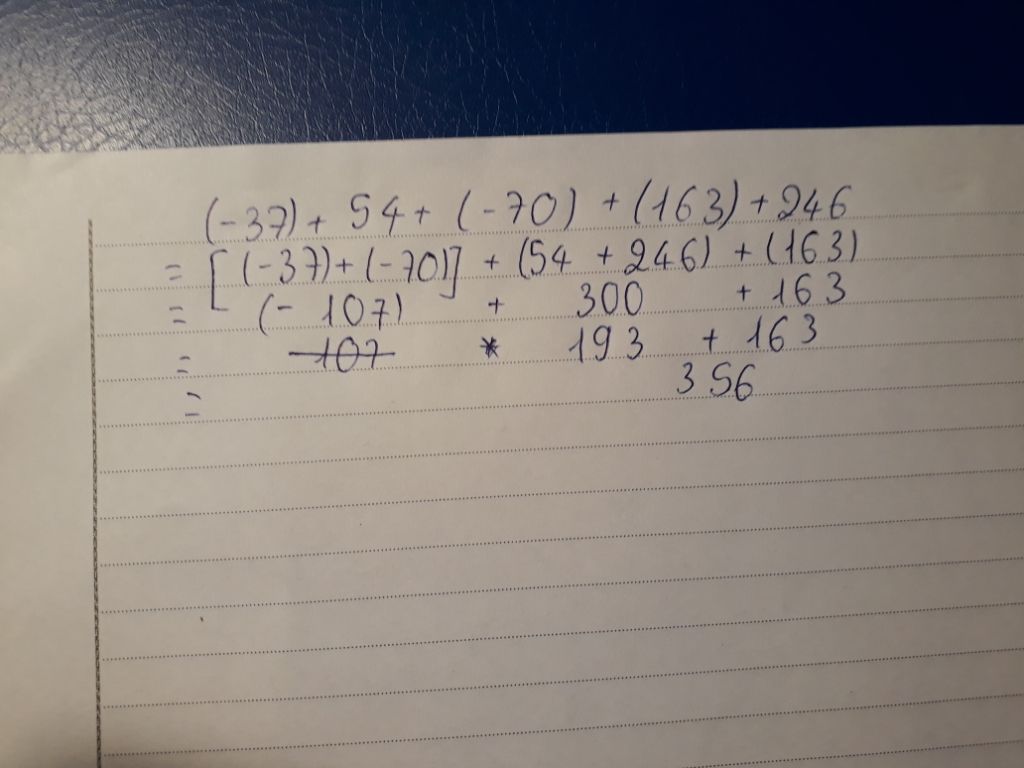 (-37) + 54 + (-70) + (163) + 246
= [(-37) + (-70)] + (54 + 246) + (163)
= (- 107) + 300 + 163
= 107 * 193 + 163
= 356